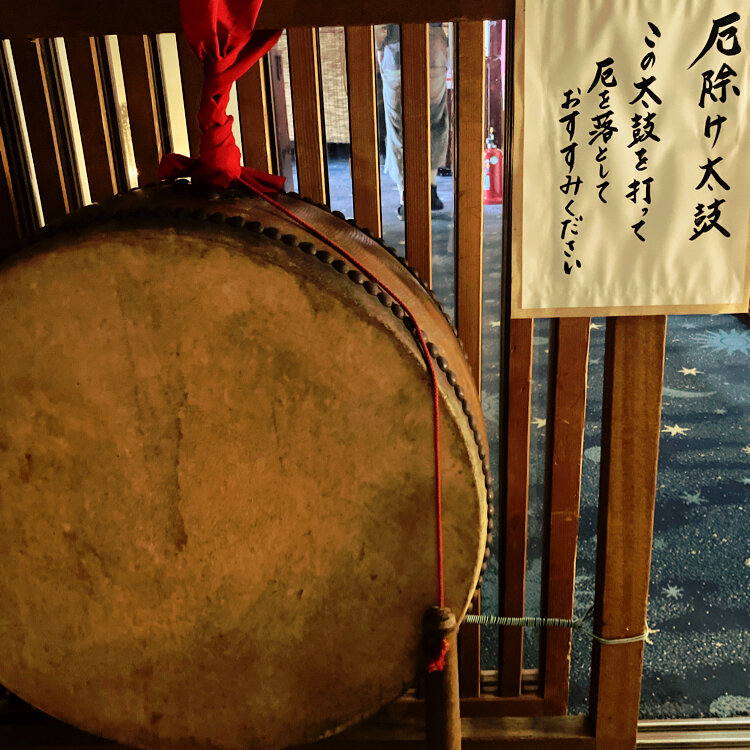 厄除け太鼓
この太鼓を打って
厄を落として
おすすみください